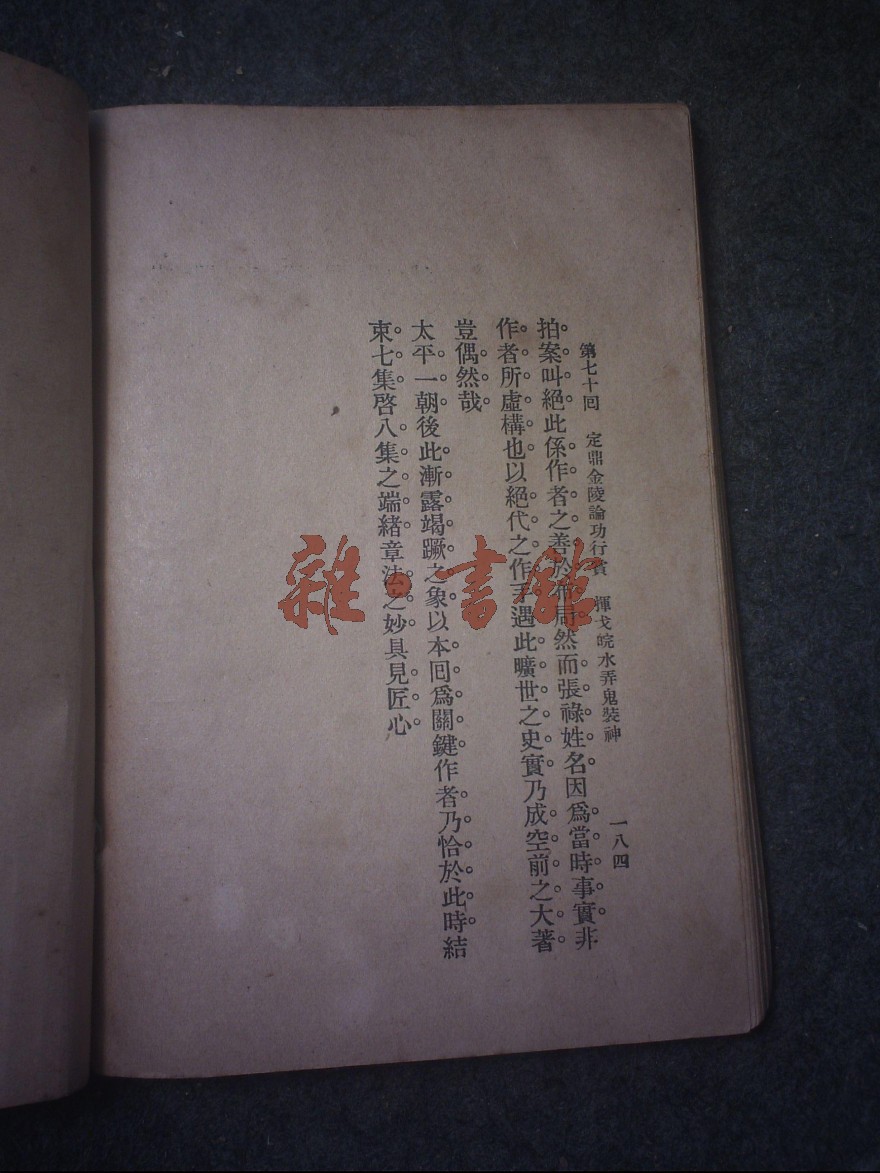 第七十回　定鼎金陵論功行賞　揮戈皖水弄鬼裝神　一八四
拍案叫絕此係作者之善於布局然而張祿姓名因爲當時事實非
作者所虛構也以絕代之作手遇此曠世之史實乃成空前之大著
豈偶然哉
太平一朝後此漸露竭蹶之象以本回爲關鍵作者乃恰於此時結
束七集啓八集之端緒章法之妙具見匠心
雜·書館